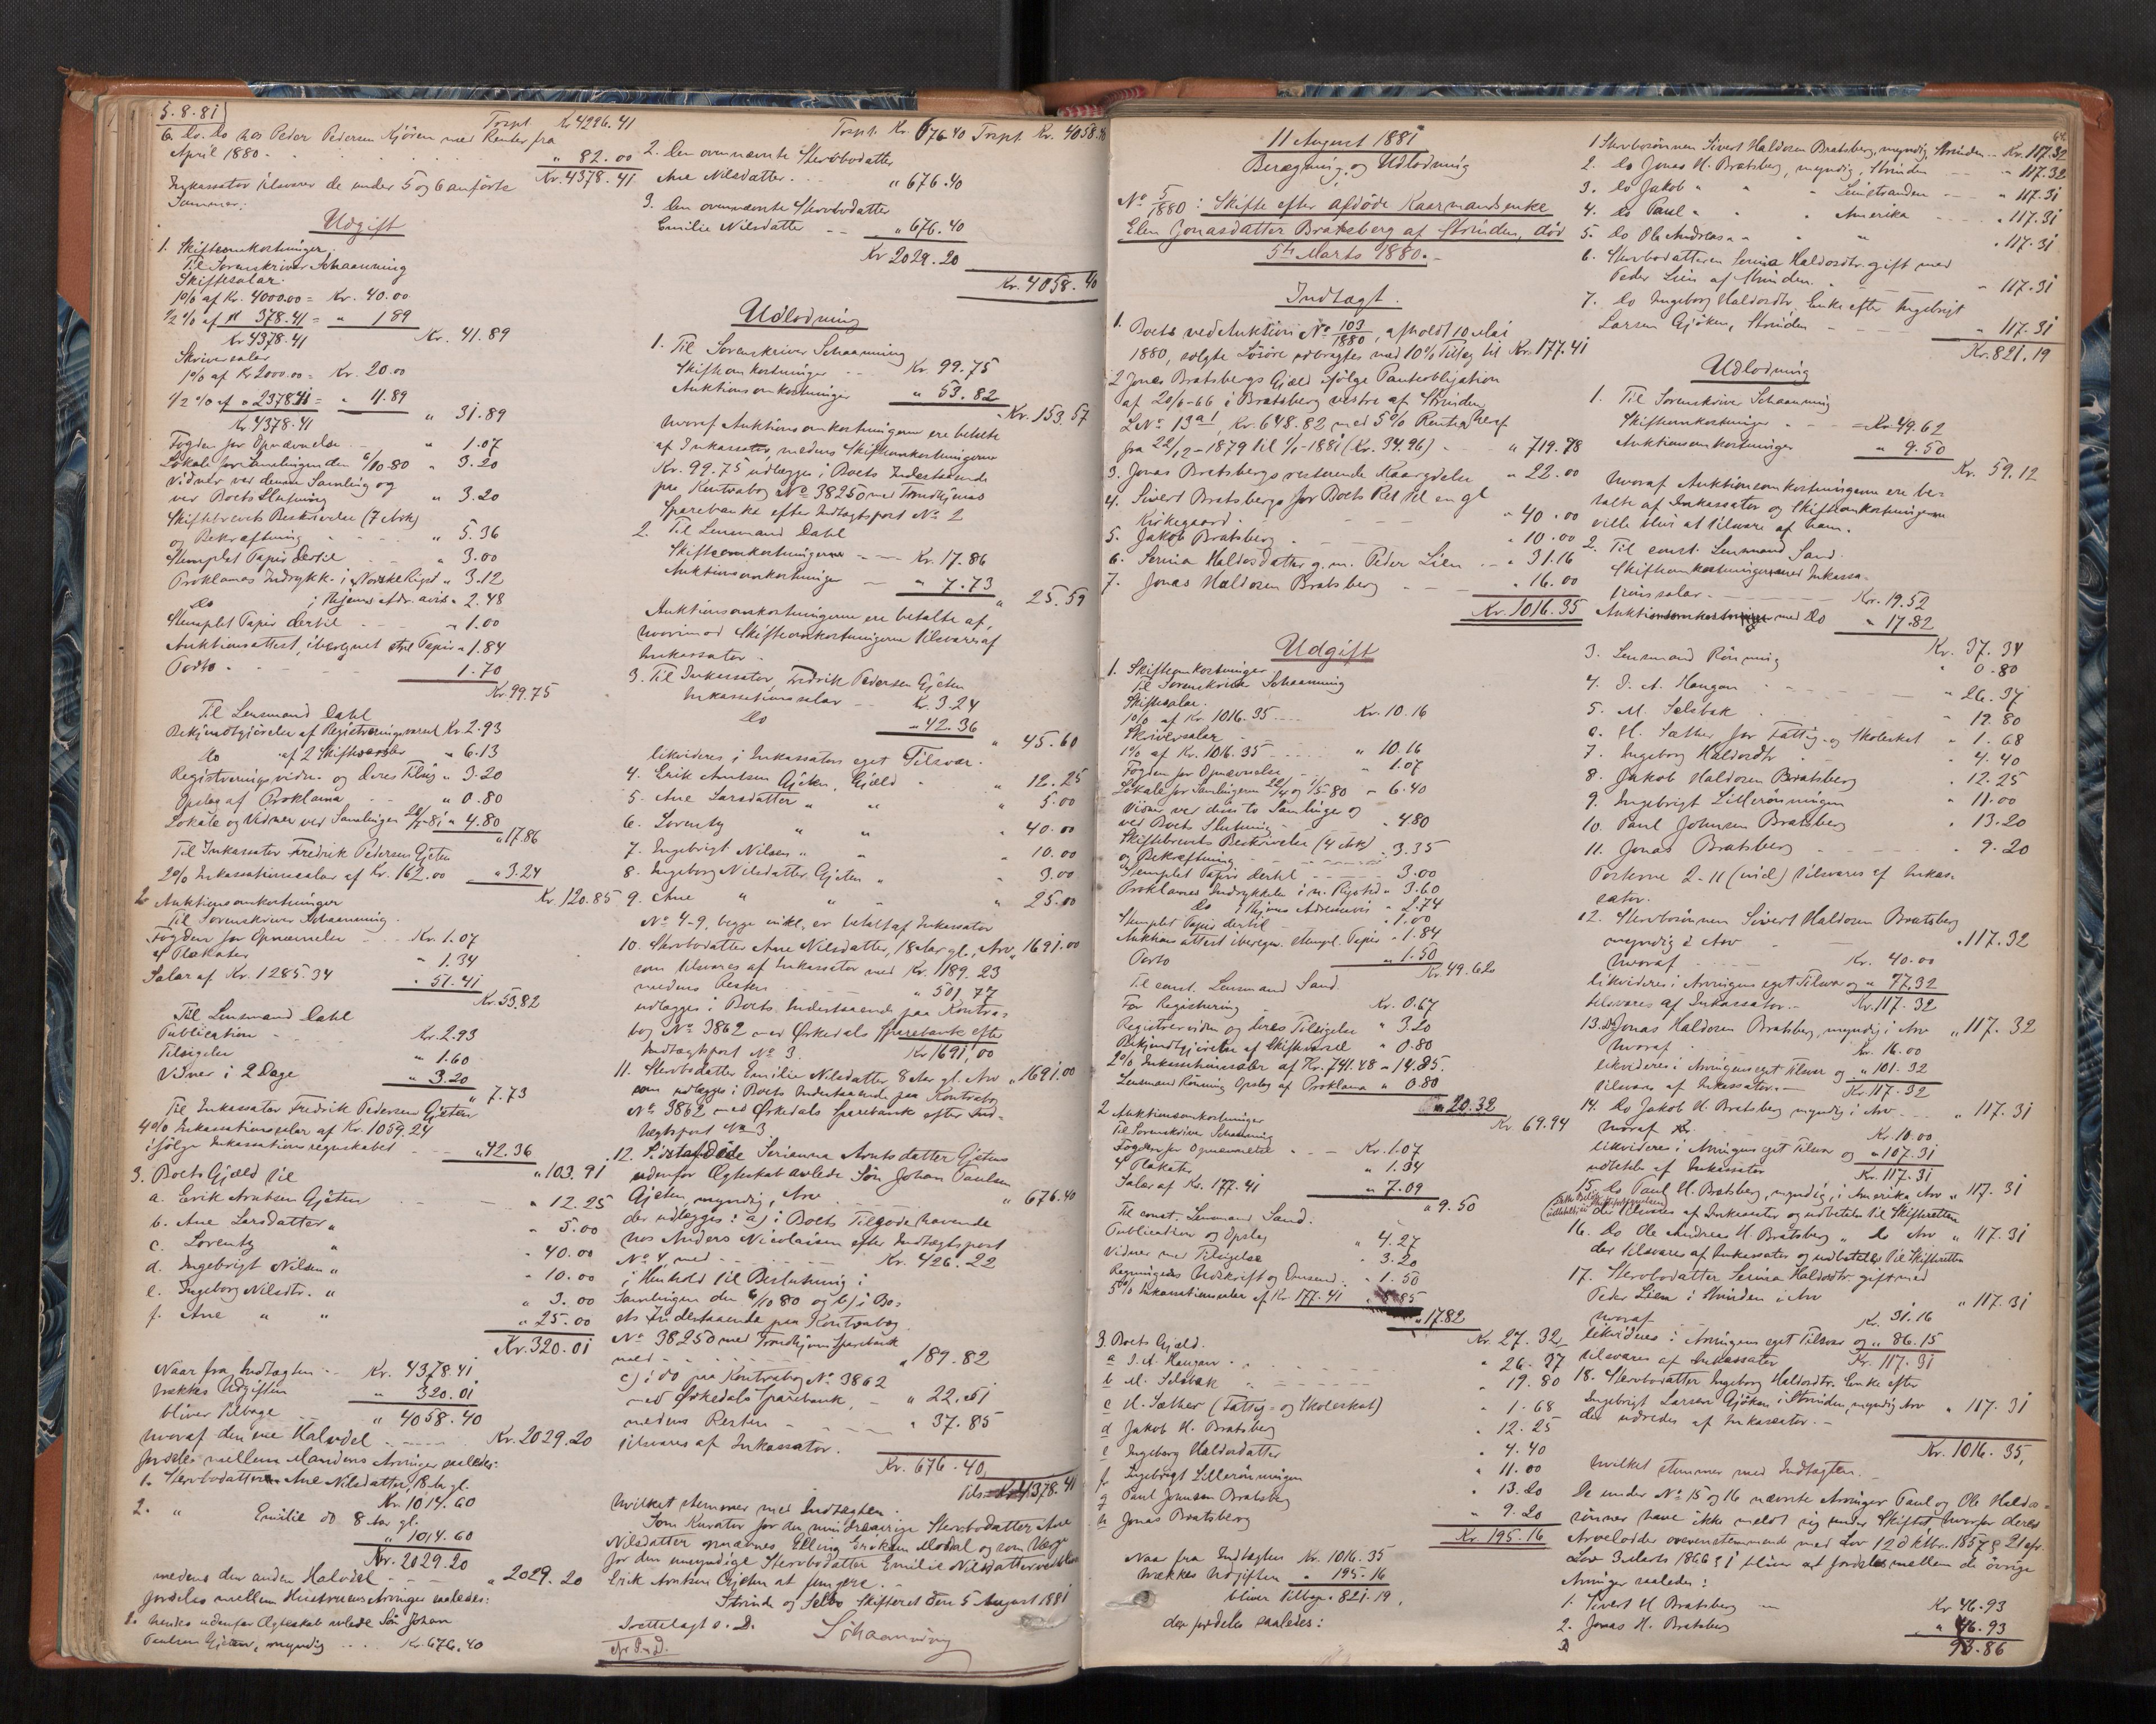 5.8.81
Tospt. Kr 4296.41
6. Do. Do hos Peder Pedersen Kjören med Renter fra
April 1880 - " 82.00
Kr. 4378.41
Inkassator tilsvarer de under 5 og 6 anförte
Summer:
Udgift
1. Skifteomkostninger.
Til Sorenskriver Schaanning
Skiftesalar.
1% af Kr. 4000.00 = Kr. 40.00
1/2 % af " 378.41 = " 1 89
Kr 4378.41 Kr. 41.89
Skriversalar
1% af Kr 2000.00 = Kr. 20.00
1/2 % af " 2378.41 = " 11.89
Kr. 4378.41 " 31.89
Fogden for Opnævnelse - " 1.07
Lokale for Samlingen den 6/10 80 " 3.20
Vidner ved denne Samling og
ved Boets Slutning " 3.20
Skiftebrevets Beskrivelse (7 Ark)
og Bekræftning - " 5.36
Stemplet Papir dertil - " 3.00
Proklamas Indrykk. i Norske Rigst " 3.12
Do i Thjems Adr. avis " 2.48
Stemplet Papir dertil - " 1.00
Auktionsattest, iberegnet stpl Papir " 1.84
Porto - 1.70
Kr. 99.75
Til Lensmand Dahl
Bekjendtgjörelse af Registreringsvarsel Kr. 2.93
Do af 2 Skiftevarsler " 6.13
Registreringsvidn. og deres Tilsig " 3.20
Opslag af Proklama " 0.80
Lokale og Vidner ved Samlingen " 4.80
" 17.86
Til Inkassator Fredrik Pedersen Gjeten
2% Inkassationssalar af Kr. 162.00 " 3.24
Kr. 120.85
2. Auktionsomkostninger
Til Sorenskriver Schaanning.
Fogden for Opnævnelse - Kr. 1.07
4 Plakater " 1.34
Salar af Kr. 1285.34 " 51.41
Kr. 53.82
Til Lensmand Dahl
Publication - Kr. 2.93
Tilsigelse " 1.60
Vidner i 2 Dage " 3.20
" 7.73
Til Inkassator Fredrik Pedersen Gjeten
4% Inkassationssalar af Kr. 1059.24
ifölge Inkassationsregnskabet - " 42.36
" 103.91
3. Boets Gjæld til
a. Erik Arntsen Gjeten - " 12.25
b. Ane Larsdatter " " 5.00
c. Lorentz " " 40.00
d. Ingebrigt Nilsen " " 10.00
e. Ingeborg Nilsdtr. " " 3.00
f. Ane " " " 25.00
Kr. 320.01
Naar fra Indtægten - Kr. 4378.41
trækkes Udgiften " 320.01
bliver tilbage " 4058.40
hvoraf den ene Halvdel - Kr. 2029.20
fordeles mellem Mandens Arvinger saaledes:
1. Stervbodatter Ane Nilsdatter, 18 Aar gl.
Kr. 1014.60
2. " Emilie do 8 Aar gl.
" 1014.60
Kr. 2029.20
medens den anden Halvdel - " 2029.20
fordeles mellem Hustruens Arvinger saaledes:
1. hendes udenfor Ægteskab avlede Sön Johan
Paulsen Gjeten, myndig .... Kr. 676.40
Tospt. Kr. 676.40 Tospt. Kr. 4058.40
2. Den ovennævnte Stervbodatter
Ane Nilsdatter. - " 676.40
3. Den ovennævnte Stervbodatter
Emilie Nilsdatter - " 676.40
Kr 2029.20
Kr. 4058.40
Udlodning
1. Til Sorenskriver Schaanning
Skifteomkostninger - Kr. 99.75
Auktionsomkostninger " 53.82
Kr. 153.57
hvoraf Auktionsomkostningerne ere betalte
af Inkassator, medens Skifteomkostningerne
Kr. 99.75 udlægges i Boets Indestaaende
paa Kontrabog No 38250 med Trondhjems
Sparebanke efter Indtægtspost No 2
2. Til Lensmand Dahl
Skifteomkostningerne - Kr. 17.86
Auktionsomkostninger - " 7.73
" 25.59
Auktionsomkostningerne ere betalte af,
hvorimod Skifteomkostningerne tilsvares af
Inkassator.
3. Til Inkassator Fredrik Pedersen Gjeten
Inkassationssalar - Kr. 3.24
Do - 42.36
" 45.60
likvideres i Inkassators eget Tilsvar.
4. Erik Arntsen Gjeten, Gjæld - " 12.25
5. Ane Larsdatter " " " 5.00
6. Lorentz " " " 40.00
7. Ingebrigt Nilsen " " " 10.00
8. Ingeborg Nilsdatter Gjeten " " 3.00
9. Ane " " " " 25.00
No 4-9, begge inkl., er betalt af Inkassator
10. Stervbodatter Ane Nilsdatter, 18 Aar gl., Arv " 1691.00
som tilsvares af Inkassator med Kr. 1189.23
medens Resten - " 501.77
udlægges i Boets Indestaaende paa Kontra-
bog No 3862 med Ørkedals Sparebank efter
Indtægtspost No 3. Kr 1691,00
11. Stervbodatter Emilie Nilsdatter, 8 Aar gl. Arv " 1691.00
som udlægges i Boets Indestaaende paa Kontrabog
No 3862 med Ørkedals Sparebank efter Ind-
tægtspost No 3.
12. Sidstafdöde Serianna Arntsdatter Gjetens
udenfor Ægteskab avlede Sön Johan Paulsen
Gjeten, myndig, Arv - " 676.40
der udlægges: a) i Boets Tilgodehavende
hos Anders Nicolaisen efter Indtægtspost
No 4, med - Kr. 426.22
i Henhold til Beslutning i
Samlingen den 6/10 80 og b) i Bo-
ets Indestaaende paa Kontrabog
No 38250 med Trondhjems Sparebank
med - " 189.82
c) i do paa Kontrabog No 3862
med Ørkedals Sparebank, - " 22.51
medens Resten - " 37.85
tilsvares af Inkassator.
Kr. 676.40
Tils. Kr. 4378.41
hvilket stemmer med Indtægten.
Som Kurator for den mindreaarige Stervbodatter Ane
Nilsdatter opnævnes Elling Eriksen Modal og som Værge
for den umyndige Stervbodatter Emilie Nilsdatter vedblev
Erik Arntsen Gjeten at fungere.
Strinde og Selbo Skifteret den 5 August 1881
Fremlagt s. D. Schaanning
64
11 August 1881
Beregning og Udlodning
No 5/1880: Skifte efter afdöde Kaarmandsenke
Elen Jonasdatter Bratsberg af Strinden, död
5te Marts 1880.-
Indtægt.
1. Boets ved Auktion No 103/1880, afholdt 10 Mai
1880, solgte Lösöre udbragtes med 10% Tillæg til Kr. 177.41
2. Jonas Bratsbergs Gjæld ifölge Panteobligation
af 20/6-66 i Bratsberg vestre af Strinden
L No 13 a1, Kr. 648.82 med 5% Renter heraf
fra 22/12-1879 til 1/1-1881 (Kr. 34.96) - " 719.78
3. Jonas Bratsbergs resterende Kaarydelse " 22.00
4. Sivert Bratsbergs for Boets Ret til en gl
Kirkegaard. - " 40.00
5. Jakob Bratsberg - " 10.00
6. Serina Haldosdatter g. m. Peder Lien - " 31.16
7. Jonas Haldosen Bratsberg - " 16.00
Kr. 1016.35
Udgift
1. Skifteomkostninger
Til Sorenskriver Schaanning
Skiftesalar.
1% af Kr. 1016.35 .... Kr. 10.16
Skriversalar
1% af Kr. 1016.35 - " 10.16
Fogden for Opnævnelse - " 1.07
Lokale for Samlingerne 22/4 og 1/5-80 " 6.40
Vidner ved disse to Samlinge og
ved Boets Slutning - " 4.80
Skiftebrevets Beskrivelse (4 Ark)
og Bekræftning - " 3.35
Stemplet Papir dertil - 3.00
Proklamas Indrykkelse i n. Rigstid " 3.60
Do i Thjems Adresseavis " 2.74
Stemplet Papir dertil - " 1.00
Auktions attest iberegn. stempl. Papir " 1.84
Porto " 1.50
Kr 49.62
Til const. Lensmand Sand.
For Registrering - Kr. 0.67
Registrervidn og deres Tilsigelse " 3.20
Bekjendtgjörelse af Skiftevarsel " 0.80
2% Inkassationssalar af Kr. 741.48 " 14.85
Lensmand Rönning Opslag af Proklama " 0.80
" 20.32
Kr. 69.94
2. Auktionsomkostninger
Til Sorenskriver Schaanning
Fogden for Opnævnelse - Kr. 1.07
4 Plakater " 1.34
Salar af Kr. 177.41 " 7.09
" 9.50
Til const. Lensmand Sand.
Publication og Opslag " 4.27
Vidner med Tilsigelse " 3.20
Regningens Udskrift og Omsend. " 1.50
5% Inkassationssalar af Kr 177.41 " 8.85
" 17.82
Kr. 27.32
3. Boets Gjæld.
a I. A. Haugan - " 26.37
b M. Selsbak - " 19.80
c H. Sæther (Fattig- og Skoleskat) " 1.68
d Jakob H. Bratsberg " 12.25
e Ingeborg Haldosdatter " 4.40
f Ingebrigt Lillerönningen " 11.00
g Paul Johnsen Bratsberg " 13.20
h Jonas Bratsberg " 9.20
Kr. 195.16
Naar fra Indtægten Kr. 1016.35
trækkes Udgiften " 195.16
bliver tilbage " 821.19,
der fordeles saaledes:
1 Stervbosönnen Sivert Haldosen Bratsberg, myndig, Strinden - Kr. 117.32
2. Do Jonas H. Bratsberg, myndig, Strinden - " 117.32
3. Do Jakob " " " Leinstranden - " 117.31
4. Do Paul " " " Amerika - " 117.31
5. Do Ole Andreas " " " " " 117.31
6. Stervbodatteren Serina Haldosdtr. gift med
Peder Lien af Strinden. - " 117.31
7. Do Ingeborg Haldosdtr, Enke efter Ingebrigt
Larsen Gjöken, Strinden - " 117.31
Kr. 821.19
Udlodning
1. Til Sorenskriver Schaanning
Skifteomkostninger - Kr. 49.62
Auktionsomkostninger " 9.50
Kr. 59.12
hvoraf Auktionsomkostningerne ere be-
talte af Inkassator og Skifteomkostningerne
ville blive at tilsvare af ham.
2. Til const. Lensmand Sand.
Skifteomkostninger med Inkassa-
tionssalar - Kr. 19.52
Auktionsomkostninger med Do " 17.82
Kr. 37.34
3. Lensmand Rönning " 0.80
4. I. A. Haugan - " 26.37
5. M. Selsbak - " 19.80
6. H. Sæther for Fattig- og Skoleskat " 1.68
7. Ingeborg Haldosdtr - " 4.40
8. Jakob Haldosen Bratsberg " 12.25
9. Ingebrigt Lillerönningen " 11.00
10. Paul Johnsen Bratsberg " 13.20
11. Jonas Bratsberg - " 9.20
Posterne 2-11 (incl) tilsvares af Inkas-
sator.
12. Stervbosönnen Sivert Haldosen Bratsberg
myndig i Arv - " 117.32
hvoraf - Kr. 40.00
likvideres i Arvingens eget Tilsvar og " 77.32
tilsvares af Inkassator. - Kr. 117.32
13. Do Jonas Haldosen Bratsberg, myndig i Arv " 117.32
hvoraf - Kr. 16.00
likvideres i Arvingens eget Tilsvar og " 101.32
tilsvares af Inkassator. - Kr 117.32
14. Do Jakob H. Bratsberg myndig i Arv - " 117.31
hvoraf - Kr. 10.00
likvideres i Arvingens eget Tilsvar og " 107.31
udbetales af Inkassator Kr. 117.31
15. Do Paul H. Bratsberg, myndig, i Amerika Arv " 117.31
der tilsvares af Inkassator og udbetales til Skifteretten
16. Do Ole Andreas H. Bratsberg " Do Arv " 117.31
der tilsvares af Inkassator og udbetales til Skifteretten
17. Stervbodatter Serina Haldosdtr. gift med
Peder Lien i Strinden i Arv " 117.31
hvoraf - Kr. 31.16
likvideres i Arvingens eget Tilsvar og " 86.15
tilsvares af Inkassator Kr. 117.31
18. Stervbodatter Ingeborg Haldosdtr. Enke efter
Ingebrigt Larsen Gjöken i Strinden, myndig Arv " 117.31
der udredes af Inkassator. -
Kr. 1016.35,
hvilket stemmer med Indtægten. -
De under No 15 og 16 nævnte Arvinger Paul og Ole Haldo-
sönner have ikke meldt sig under Skiftet hvorfor deres
Arvelodder overensstemmende med Lov 12 Oktbr. 1857 § 2 jfr.
Lov 3 Marts 1866 § 1 bliver at fordeles mellem de övrige
Arvinger saaledes:
1. Sivert H Bratsberg - Kr 46.93
2. Jonas H. Bratsberg " 46.93
93.86